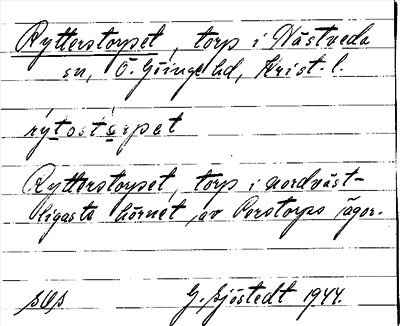 Rytterstorpet, torp i Nästveda
sn, Ö. Göinge hd, Krist. l.
rýtostòrpet
Rytterstorpet, torp i nordväst-
ligaste hörnet av Perstorps ägor.
G. Sjöstedt 1944.